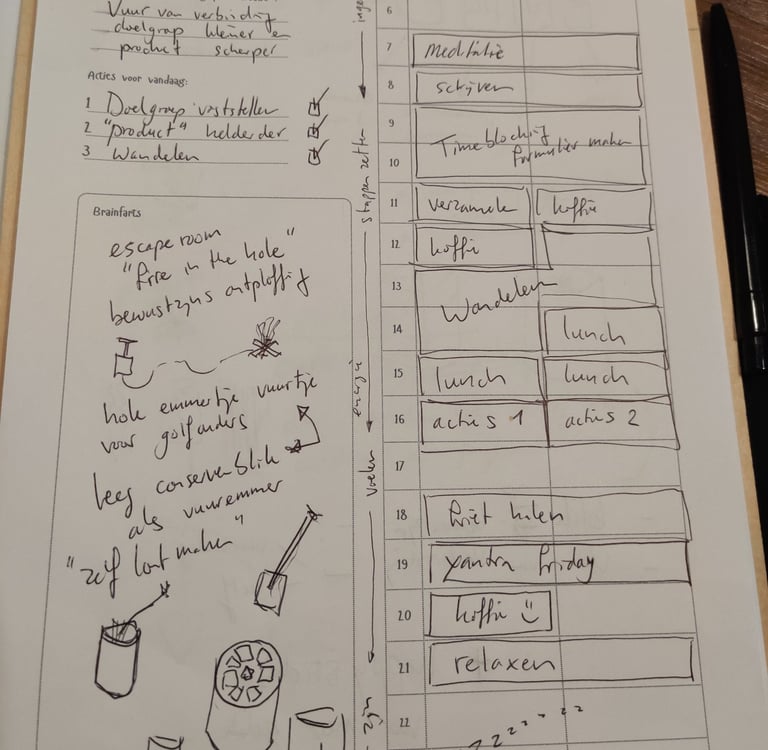 Vuur van verbinding
doelgroep kleiner en
product scherper
Acties voor vandaag:
1 Doelgroep vaststellen
2 "product" helderder
3 Wandelen
Brainfarts
escape room
"fire in the hole"
bewustzijns ontploffing
hole emmertje vuurtje
voor golfanders
leeg conservenblik
als vuuremmer
"zelf lont maken"
stappen zetten
energie
voelen
zijn
6
7 meditatie
8 schrijven
9
Timeblocking
formulier maken
10
11 verzamelen koffie
12 koffie
13
Wandelen
14 lunch
15 lunch lunch
16 acties 1 acties 2
17
18 halen
19 Xandra friday
20 koffie
21 relaxen
22
z z z z z z z